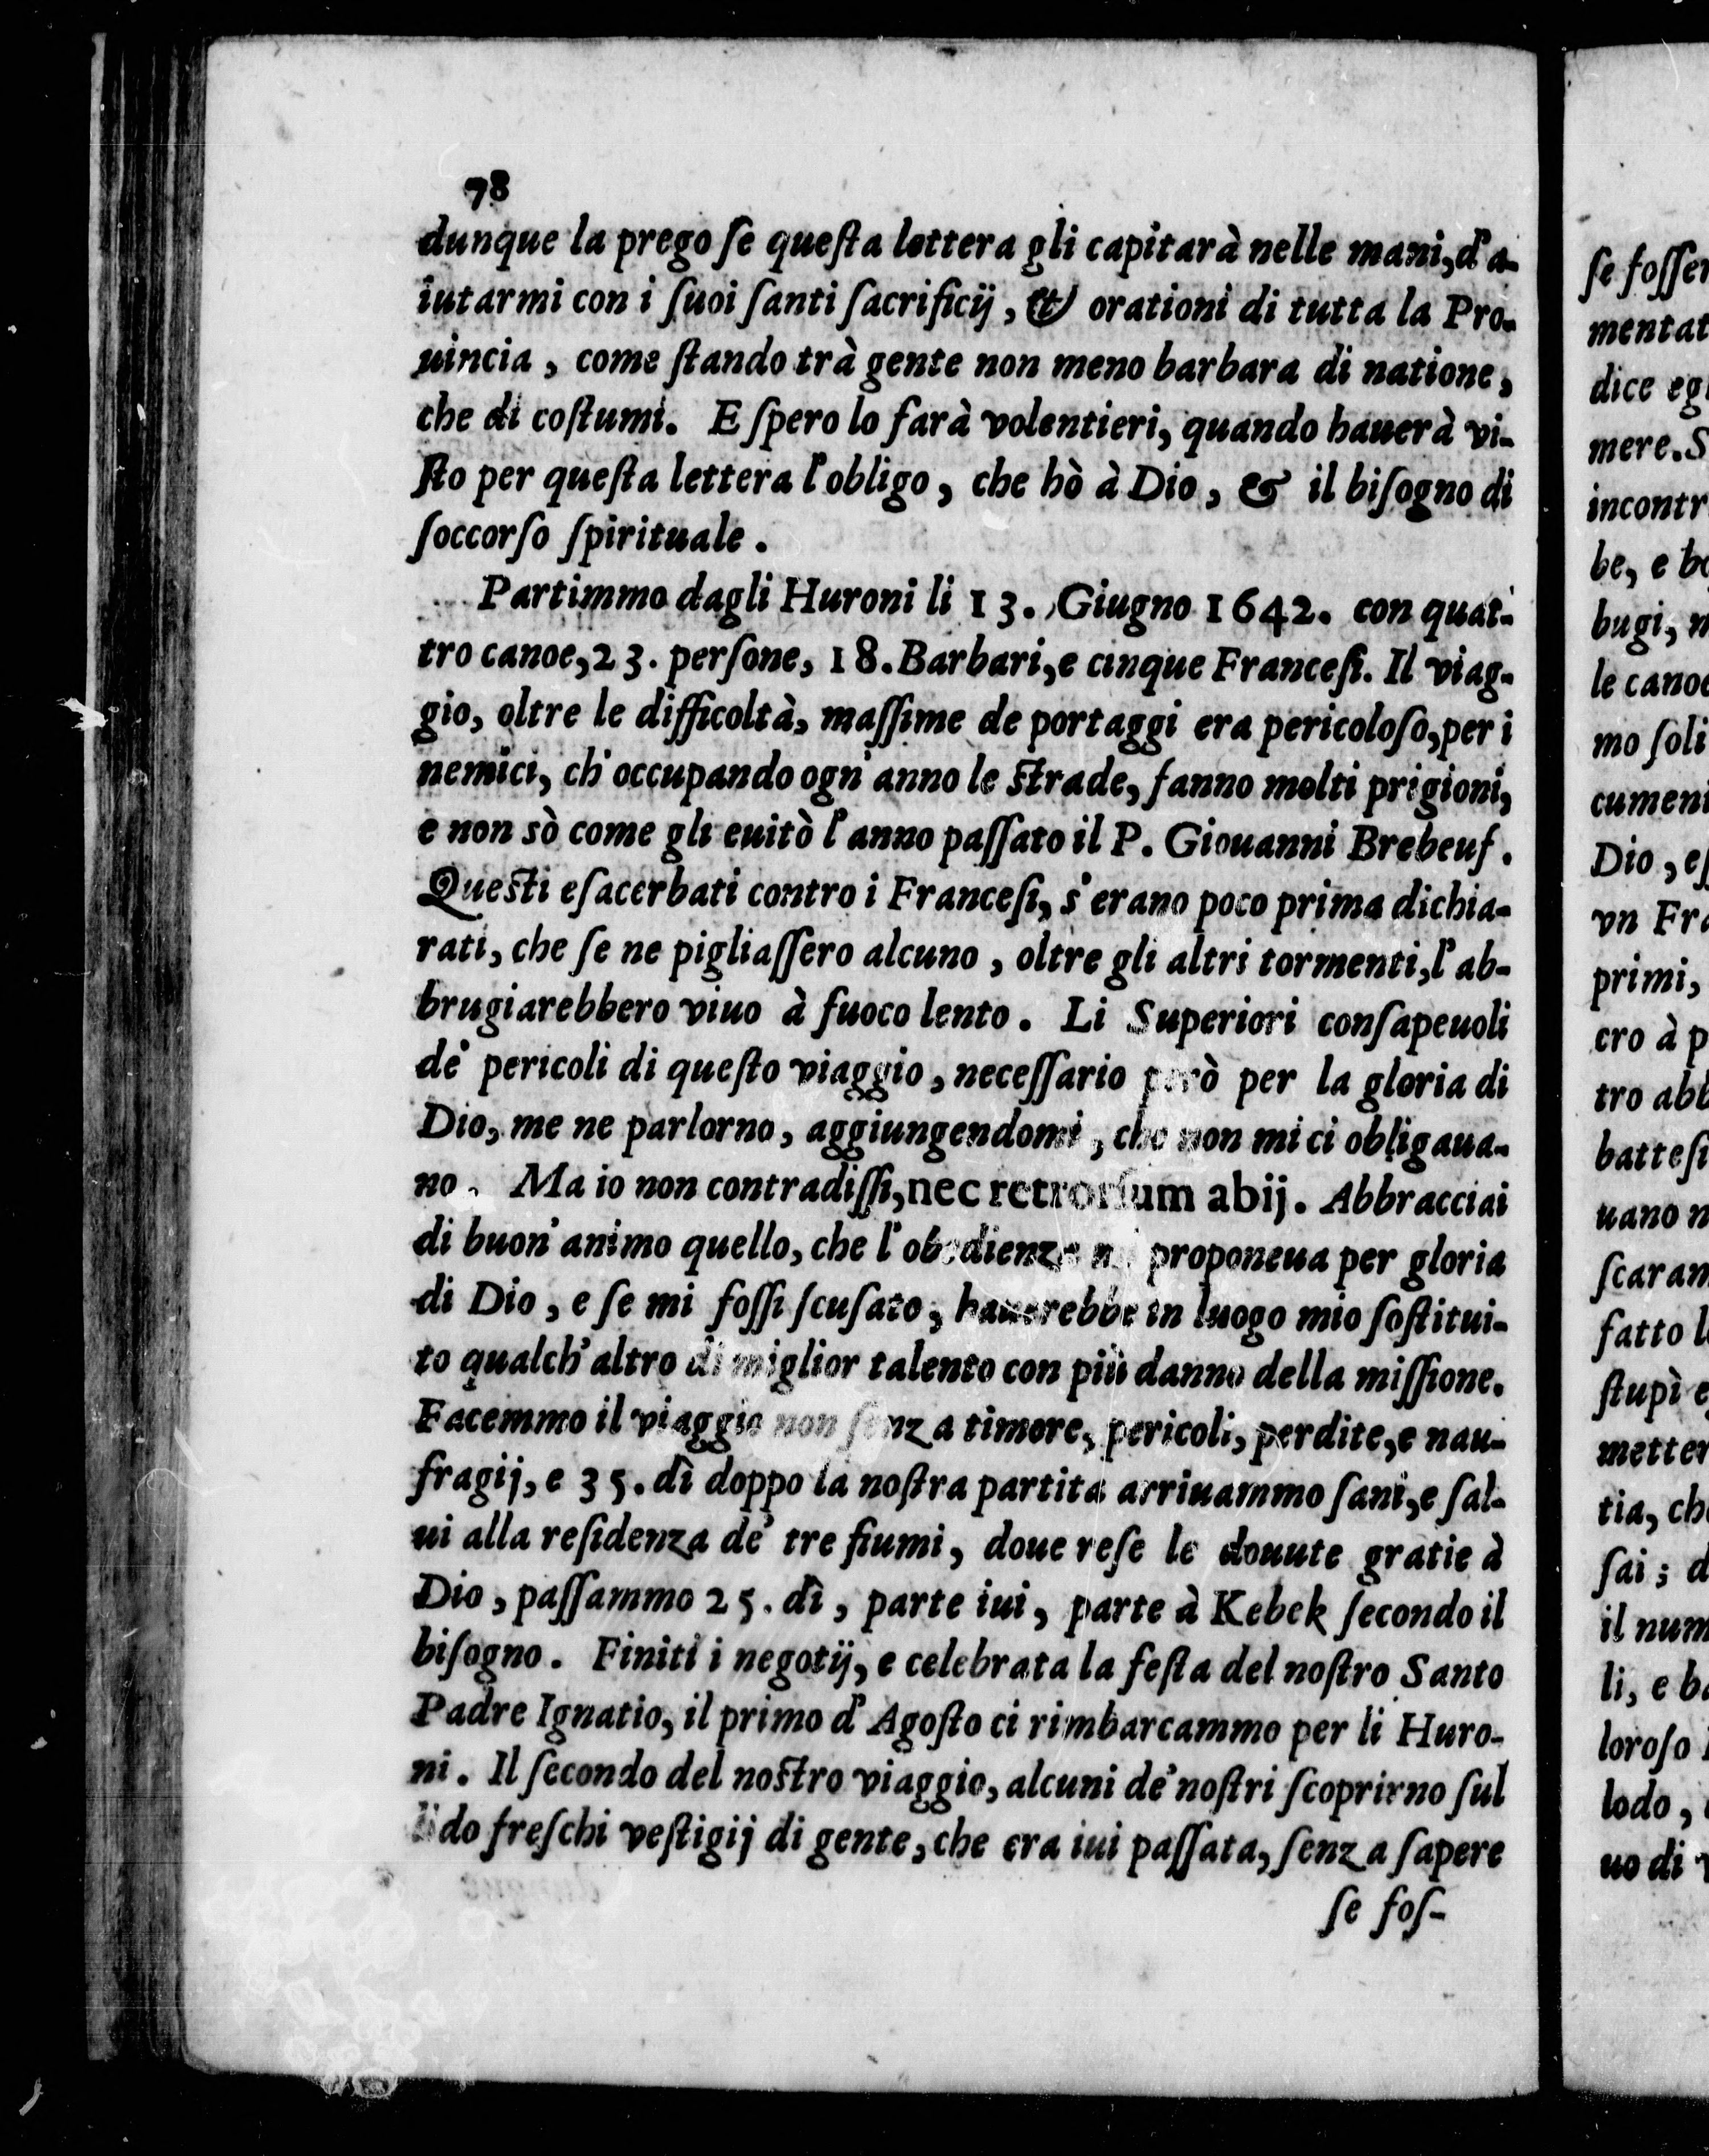 78
dunque la prego ſe queſta lettera gli capitarà nelle mani, d'a-
iutarmi con i ſuoi ſanti ſacrificij, & orationi di tutta la Pro-
uincia, come ſtando trà gente non meno barbara di natione,
che di coſtumi. E ſpero lo farà volentieri, quando hauerà vi-
ſto per queſta lettera l'obligo, che hò à Dio, & il biſogno di
ſoccorſo ſpirituale.
Partimmo dagli Huroni li 13. Giugno 1642. con quat-
tro canoe, 23. perſone, 18. Barbari, e cinque Franceſi. Il viag-
gio, oltre le difficoltà, maſſime de portaggi era pericoloſo, per i
nemici, ch'occupando ogn'anno le ſtrade, fanno molti prigioni,
e non sò come gli euitò l'anno paſſato il P. Giouanni Brebeuf.
Queſti eſacerbati contro i Franceſi, s'erano poco prima dichia-
rati, che ſe ne pigliaſſero alcuno, oltre gli altri tormenti, l'ab-
brugiarebbero viuo à fuoco lento. Li Superiori conſapeuoli
de' pericoli di queſto viaggio, neceſſario però per la gloria di
Dio, me ne parlorno, aggiungendomi, che non mi ci obligaua-
no. Ma io non contradiſſi, nec retrorſum abij. Abbracciai
di buon'animo quello, che l'obedienza mi proponeua per gloria
di Dio, e ſe mi foſſi ſcuſato, hauerebbe in luogo mio ſoſtitui-
to qualch'altro di miglior talento con più danno della miſſione.
Facemmo il viaggio non ſenza timore, pericoli, perdite, e nau-
fragij, e 35. dì doppo la noſtra partita arriuammo ſani, e ſal-
ui alla reſidenza de' tre fiumi, doue reſe le douute gratie à
Dio, paſſammo 25. dì, parte iui, parte à Kebek ſecondo il
biſogno. Finiti i negotij, e celebrata la feſta del noſtro Santo
Padre Ignatio, il primo d'Agoſto ci rimbarcammo per li Huro-
ni. Il ſecondo del noſtro viaggio, alcuni de' noſtri ſcoprirno ſul
lido freſchi veſtigij di gente, che era iui paſſata, ſenza ſapere
ſe foſ-
ſe foſſer
mentat
dice eg
mere. S
incontr
be, e bo
bugi, n
le canoe
mo ſoli
cumeni
Dio, eſ
vn Fra
primi,
cro à p
tro abb
batteſi
uano n
ſcaram
fatto l
ſtupì e
metter
tia, ch
ſai; d
il num
li, e ba
loroſo
lodo,
uo di